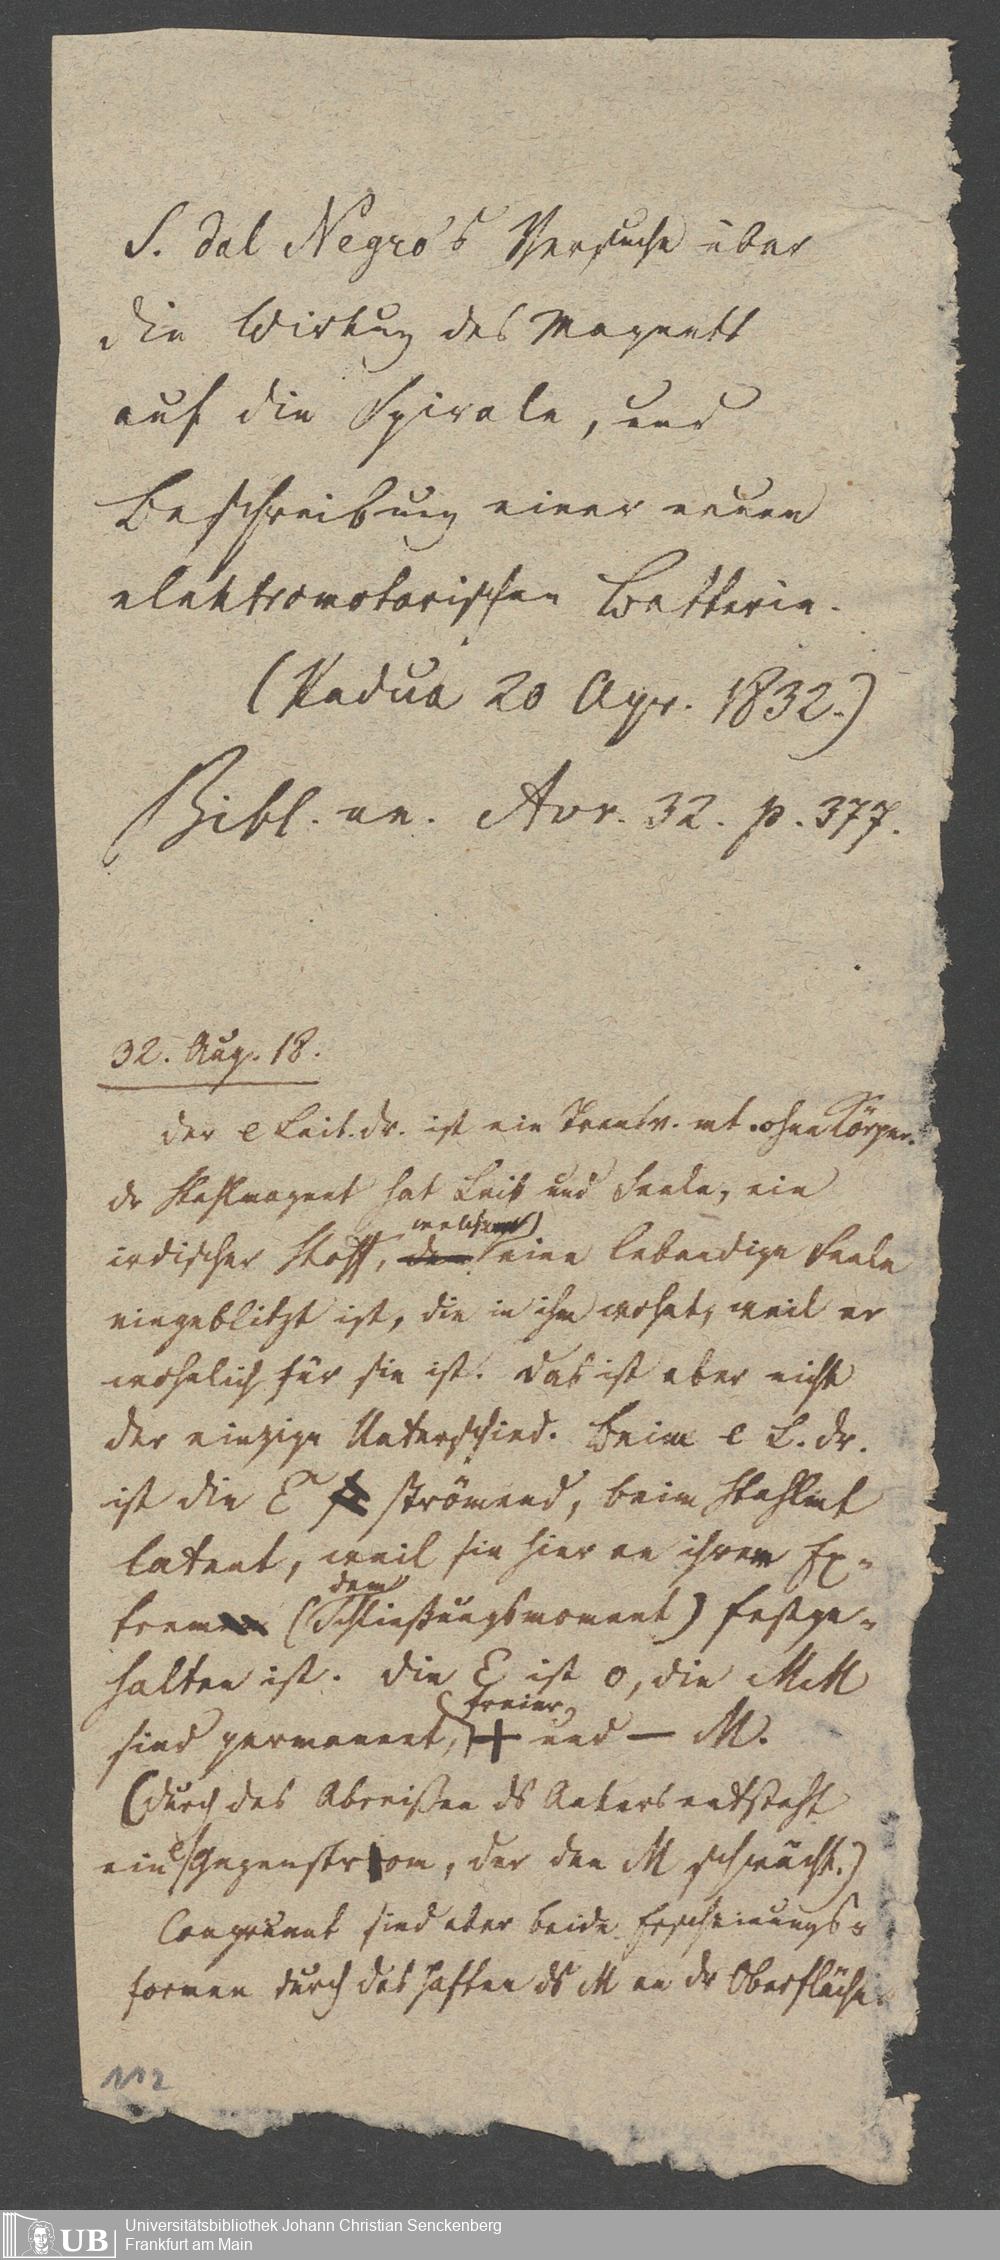 S. dal Negro's Versuche über
die Wirkung des Magnets
auf die Spirale, und
Beschreibung einer neuen
elektromotorischen Batterie.
(Padua 20 Apr. 1832.)
Bibl. un. Avr. 32. p. 377.
32. Aug. 18.
Der e Leit.dr. ist ein mt. ohne Körper.
dr Stahlmagnet hat Leib und Seele, ein
irdischer Stoff, welchem eine lebendige Seele
eingeblitzt ist, die in ihm wohnt, weil er
wohnlich für sie ist. Das ist aber nicht
der einzige Unterschied. Beim e L.dr.
ist die E strömend, beim Stahlmt
latent, weil sie hier an ihrem Ex-
trem (dem Schließungsmoment) festge-
halten ist. Die E ist 0, die MM
sind permanent, freier + und — M.
(Durch das Abreißen ds Ankers entsteht
ein e Gegenstrom, der den M schwächt.)
Congruent sind aber beide Erscheinungs-
formen durch das Haften ds M an dr Oberfläche.
112
UB
Universitätsbibliothek Johann Christian Senckenberg
Frankfurt am Main